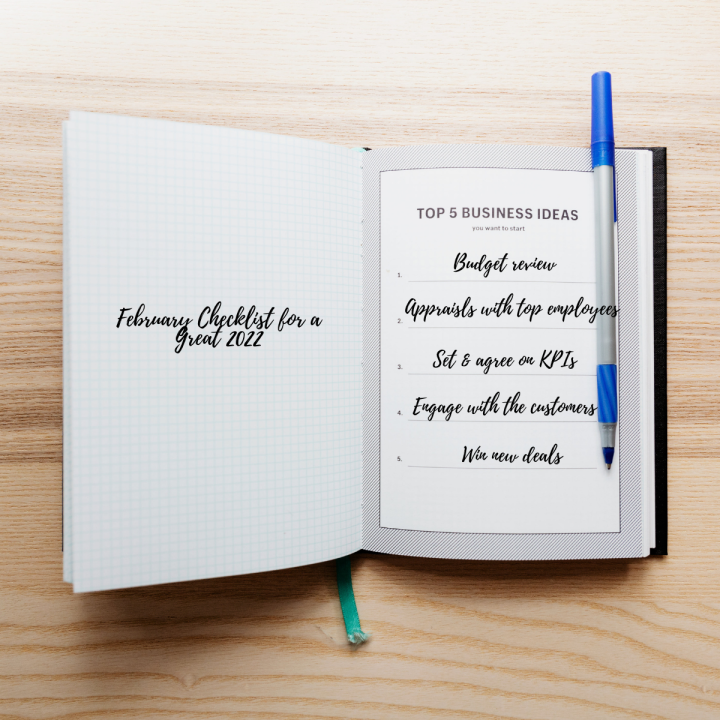 February Checklist for a
Great 2022
TOP 5 BUSINESS IDEAS
you want to start
1. Budget review
2. Appraisls with top employees
3. Set & agree on KPIs
4. Engage with the customers
5. Win new deals